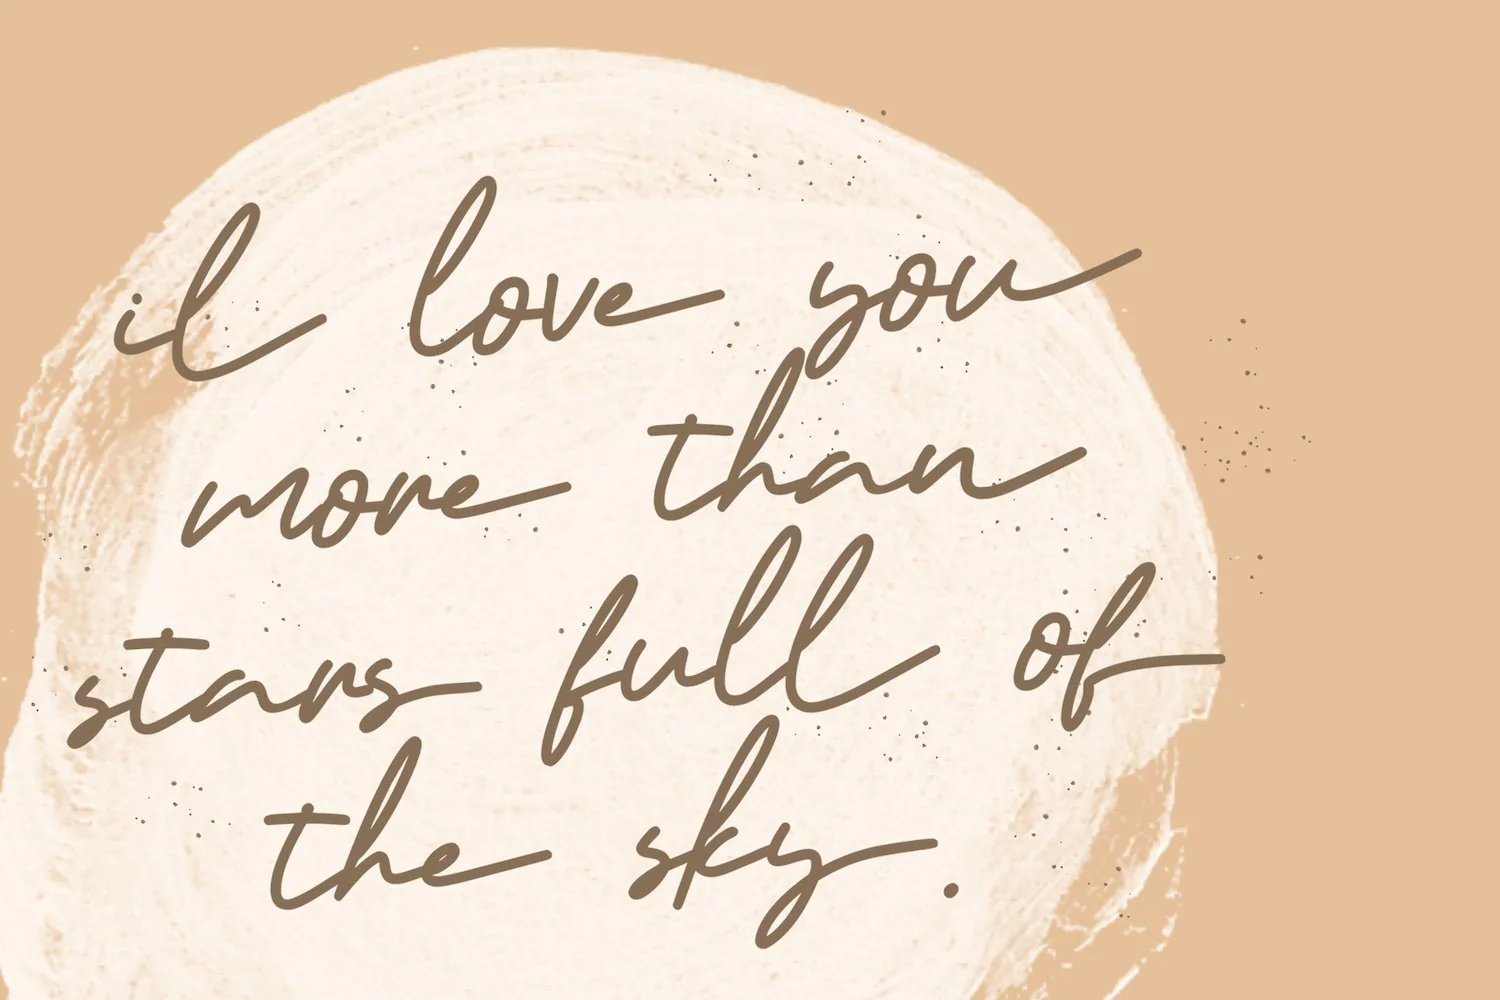 il love you
more than
stars full of
the sky.